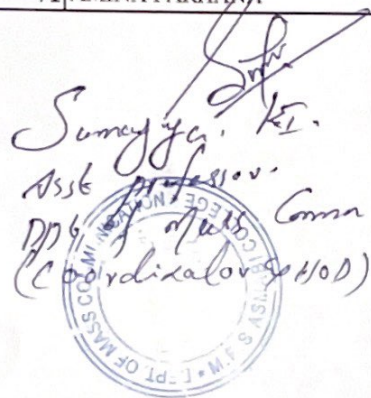 Sumayya. K.I.
Asst professor.
Dpt of Mass Comm
(Coordinator & HOD)
DEPT. OF MASS COMMUNICATION
M.E.S ASMABI COLLEGE